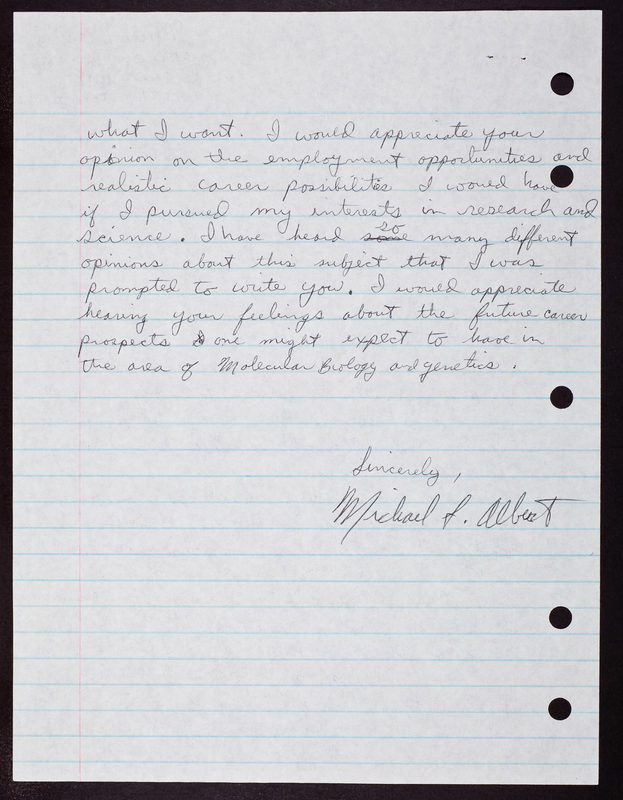 what I want. I would appreciate your
opinion on the employment opportunities and
realistic career possibilities I would have
if I pursued my interests in research and
science. I have heard so many different
opinions about this subject that I was
prompted to write you. I would appreciate
hearing your feelings about the future career
prospects one might expect to have in
the area of Molecular Biology and genetics.
Sincerely,
Michael P. Albert